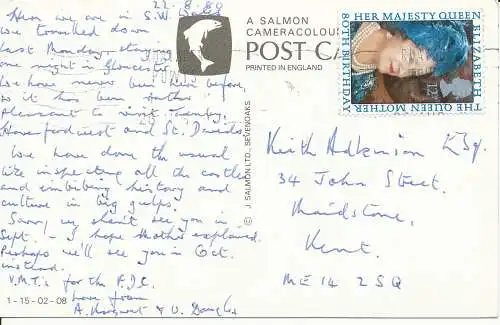 22.8.80
Here we are in
S.W.
We toomled down
last Monday, staying
one night in Gloucester
We have never been here before,
so it has been rather
pleasant to visit Tenby,
Haverfordwest and St. Davids.
We have done the usual
bit inspecting all the castles
and imbibing history and
culture in big gulps.
Sorry we shan't see you in
Sept. - I hope Mother explained.
Perhaps we'll see you in Oct.
instead.
V.M.T's for the P.J.C.
Love from
A. Margaret & U. Douglas
1-15-02-08
A SALMON
CAMERACOLOUR
POST CA
PRINTED IN ENGLAND
© J. SALMON LTD., SEVENOAKS
HER MAJESTY QUEEN
ELIZABETH
THE QUEEN MOTHER
80TH BIRTHDAY
12P
Keith Adkinson Esq.
34 John Street.
Maidstone,
Kent.
ME14 2SQ